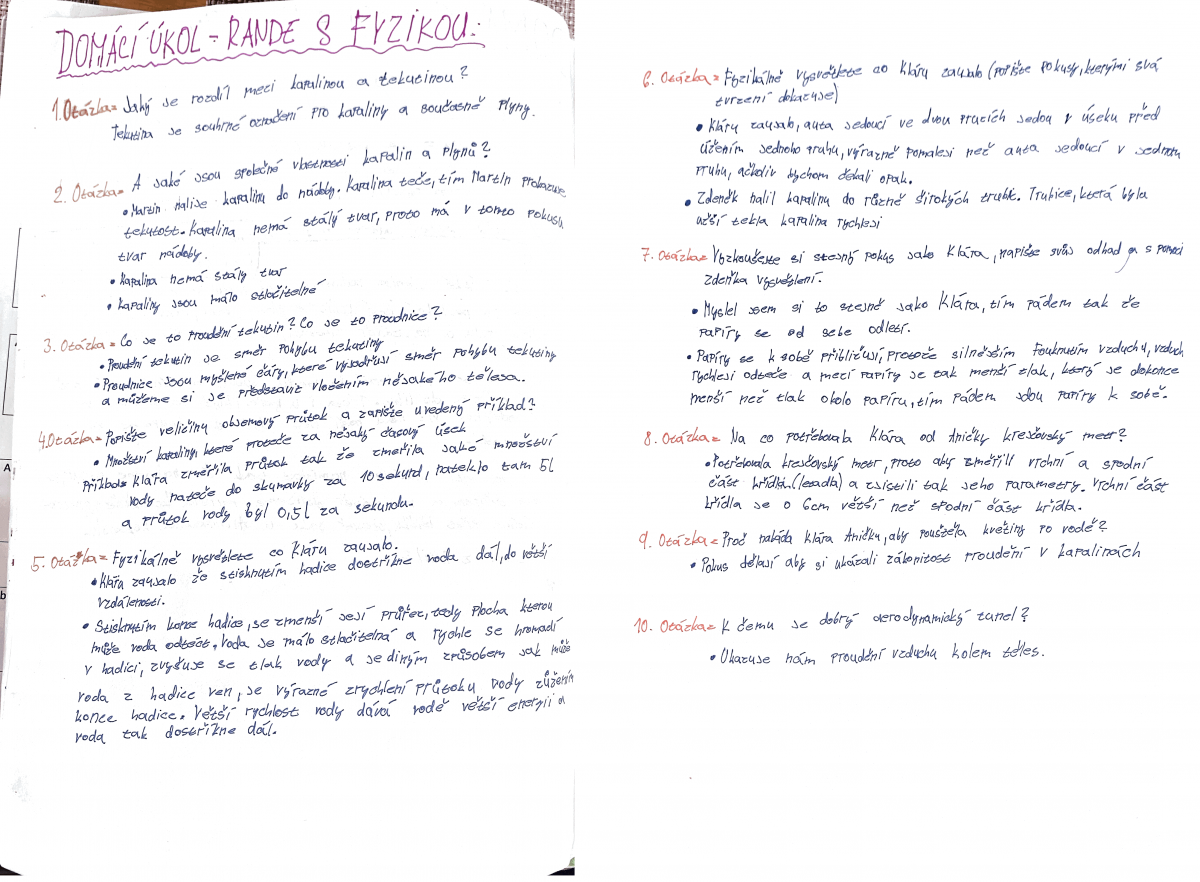 DOMÁCÍ ÚKOL - RANDE S FYZIKOU:
1. Otázka = Jaký je rozdíl mezi kapalinou a tekutinou?
Tekutina je souhrné označení pro kapaliny a současně plyny.
2. Otázka = A jaké jsou společné vlastnosti kapalin a plynů?
• Martin nalije kapalinu do nádoby. Kapalina teče, tím Martin prokazuje
tekutost. Kapalina nemá stálý tvar, proto má v tomto pokusu
tvar nádoby.
• Kapalina nemá stálý tvar
• Kapaliny jsou málo stlačitelné
3. Otázka = Co je to proudění tekutin? Co je to proudnice?
• Proudění tekutin je směr pohybu tekutiny
• Proudnice jsou myšlené čáry, které vyjadřují směr pohybu tekutiny
a můžeme si je představit vložením nějakého tělesa.
4. Otázka = Popište veličinu objemový průtok a zapište uvedený příklad?
• Množství kapaliny, které proteče za nějaký časový úsek
Příklad: Klára změřila průtok tak že změřila jaké množství
vody nateče do skumavky za 10 sekund, nateklo tam 5l
a průtok vody byl 0,5l za sekundu.
5. Otázka = Fyzikálně vysvětlete co Kláru zaujalo.
• Kláru zaujalo že stisknutím hadice dostříkne voda dál, do větší
vzdálenosti.
• Stisknutím konce hadice, se zmenší její průřez, tedy plocha kterou
může voda odtéct, voda je málo stlačitelná a rychle se hromadí
v hadici, zvyšuje se tlak vody a jediným způsobem jak může
voda z hadice ven, je výrazné zrychlení průtoku vody zúžením
konce hadice. Větší rychlost vody dává vodě větší energii a
voda tak dostříkne dál.
6. Otázka = Fyzikálně vysvětlete co Kláru zaujalo (popište pokusy, kterými svá
tvrzení dokazuje)
• Kláru zaujalo, auta jedoucí ve dvou pruzích jedou v úseku před
úžením jednoho pruhu, výrazně pomaleji než auta jedoucí v jednom
pruhu, ačkoliv bychom čekali opak.
• Zdeněk nalil kapalinu do různě širokých trubic. Trubice, která byla
užší tekla kapalina rychleji
7. Otázka = Vyzkoušejte si stejný pokus jako Klára, napište svůj odhad a s pomocí
Zdeňka vysvětlení.
• Myslel jsem si to stejně jako Klára, tím pádem tak že
papíry se od sebe odletí.
• Papíry se k sobě přibližují, protože silnějším fouknutím vzduchu, vzduch
rychleji odteče a mezi papíry je tak menší tlak, který je dokonce
menší než tlak okolo papíru, tím pádem jdou papíry k sobě.
8. Otázka = Na co potřebovala Klára od Aničky krejčovský metr?
• Potřebovala krejčovský metr, proto aby změřili vrchní a spodní
část křídla (letadla) a zjistili tak jeho parametry. Vrchní část
křídla je o 6cm větší než spodní část křídla.
9. Otázka = Proč nabádá Klára Aničku, aby pouštěla květiny po vodě?
• Pokus dělají aby si ukázali zákonitost proudění v kapalinách
10. Otázka = K čemu je dobrý aerodynamický tunel?
• Ukazuje nám proudění vzduchu kolem těles.